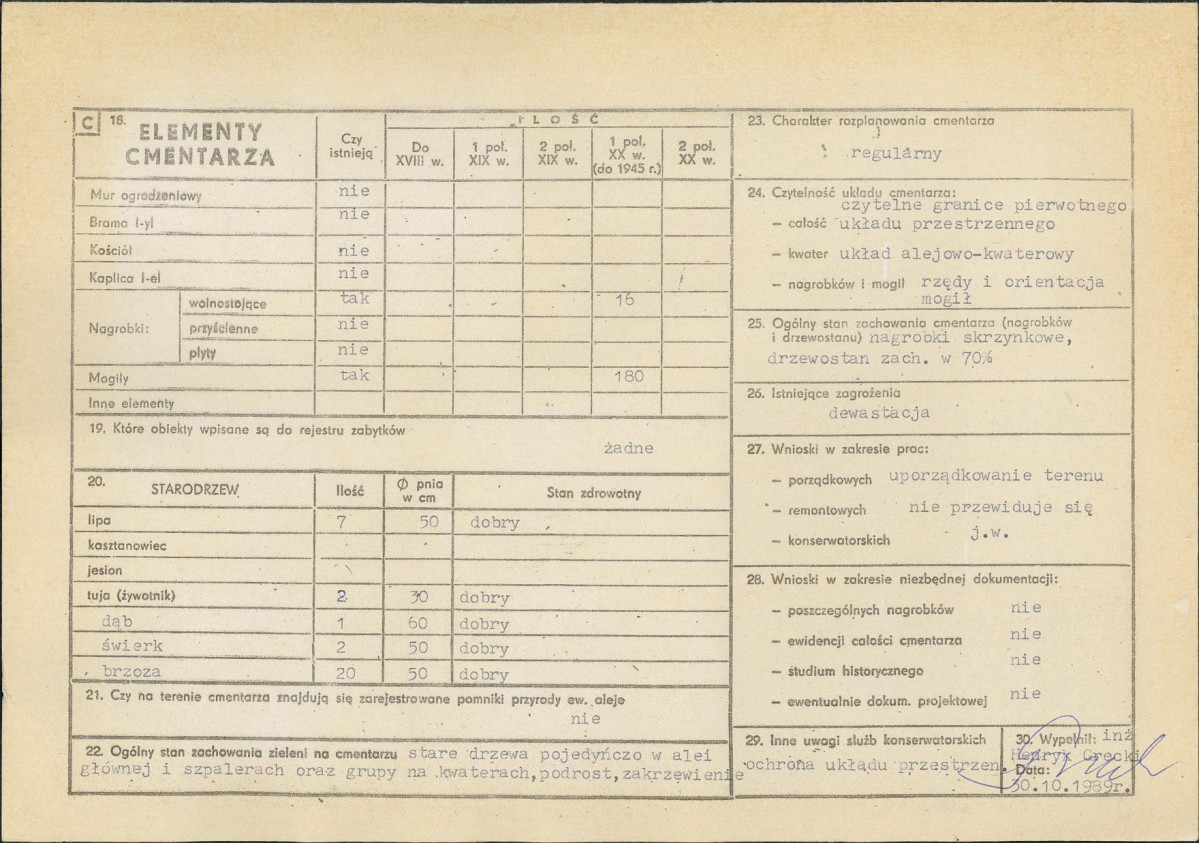 C 18. ELEMENTY CMENTARZA
Czy istnieją
ILOŚĆ
Do XVIII w.
1 poł. XIX w.
2 poł. XIX w.
1 poł. XX w. (do 1945 r.)
2 poł. XX w.
Mur ogrodzeniowy nie
Brama (-y) nie
Kościół nie
Kaplica (-e) nie
Nagrobki: wolnostojące tak 16
przyścienne nie
płyty nie
Mogiły tak 180
Inne elementy
19. Które obiekty wpisane są do rejestru zabytków
żadne
20. STARODRZEW Ilość Ø pnia w cm Stan zdrowotny
lipa 7 50 dobry
kasztanowiec
jesion
tuja (żywotnik) 2 30 dobry
dąb 1 60 dobry
świerk 2 50 dobry
brzoza 20 50 dobry
21. Czy na terenie cmentarza znajdują się zarejestrowane pomniki przyrody ew. aleje
nie
22. Ogólny stan zachowania zieleni na cmentarzu stare drzewa pojedyńczo w alei
głównej i szpalerach oraz grupy na kwaterach, podrost, zakrzewienie
23. Charakter rozplanowania cmentarza
regularny
24. Czytelność układu cmentarza:
czytelne granice pierwotnego
– całość układu przestrzennego
– kwater układ alejowo-kwaterowy
– nagrobków i mogił rzędy i orientacja
mogił
25. Ogólny stan zachowania cmentarza (nagrobków
i drzewostanu) nagrobki skrzynkowe,
drzewostan zach. w 70%
26. Istniejące zagrożenia
dewastacja
27. Wnioski w zakresie prac:
– porządkowych uporządkowanie terenu
– remontowych nie przewiduje się
– konserwatorskich j.w.
28. Wnioski w zakresie niezbędnej dokumentacji:
– poszczególnych nagrobków nie
– ewidencji całości cmentarza nie
– studium historycznego nie
– ewentualnie dokum. projektowej nie
29. Inne uwagi służb konserwatorskich
ochrona układu przestrzen.
30. Wypełnił: inż
Henryk Grecki
Data:
30.10.1989r.